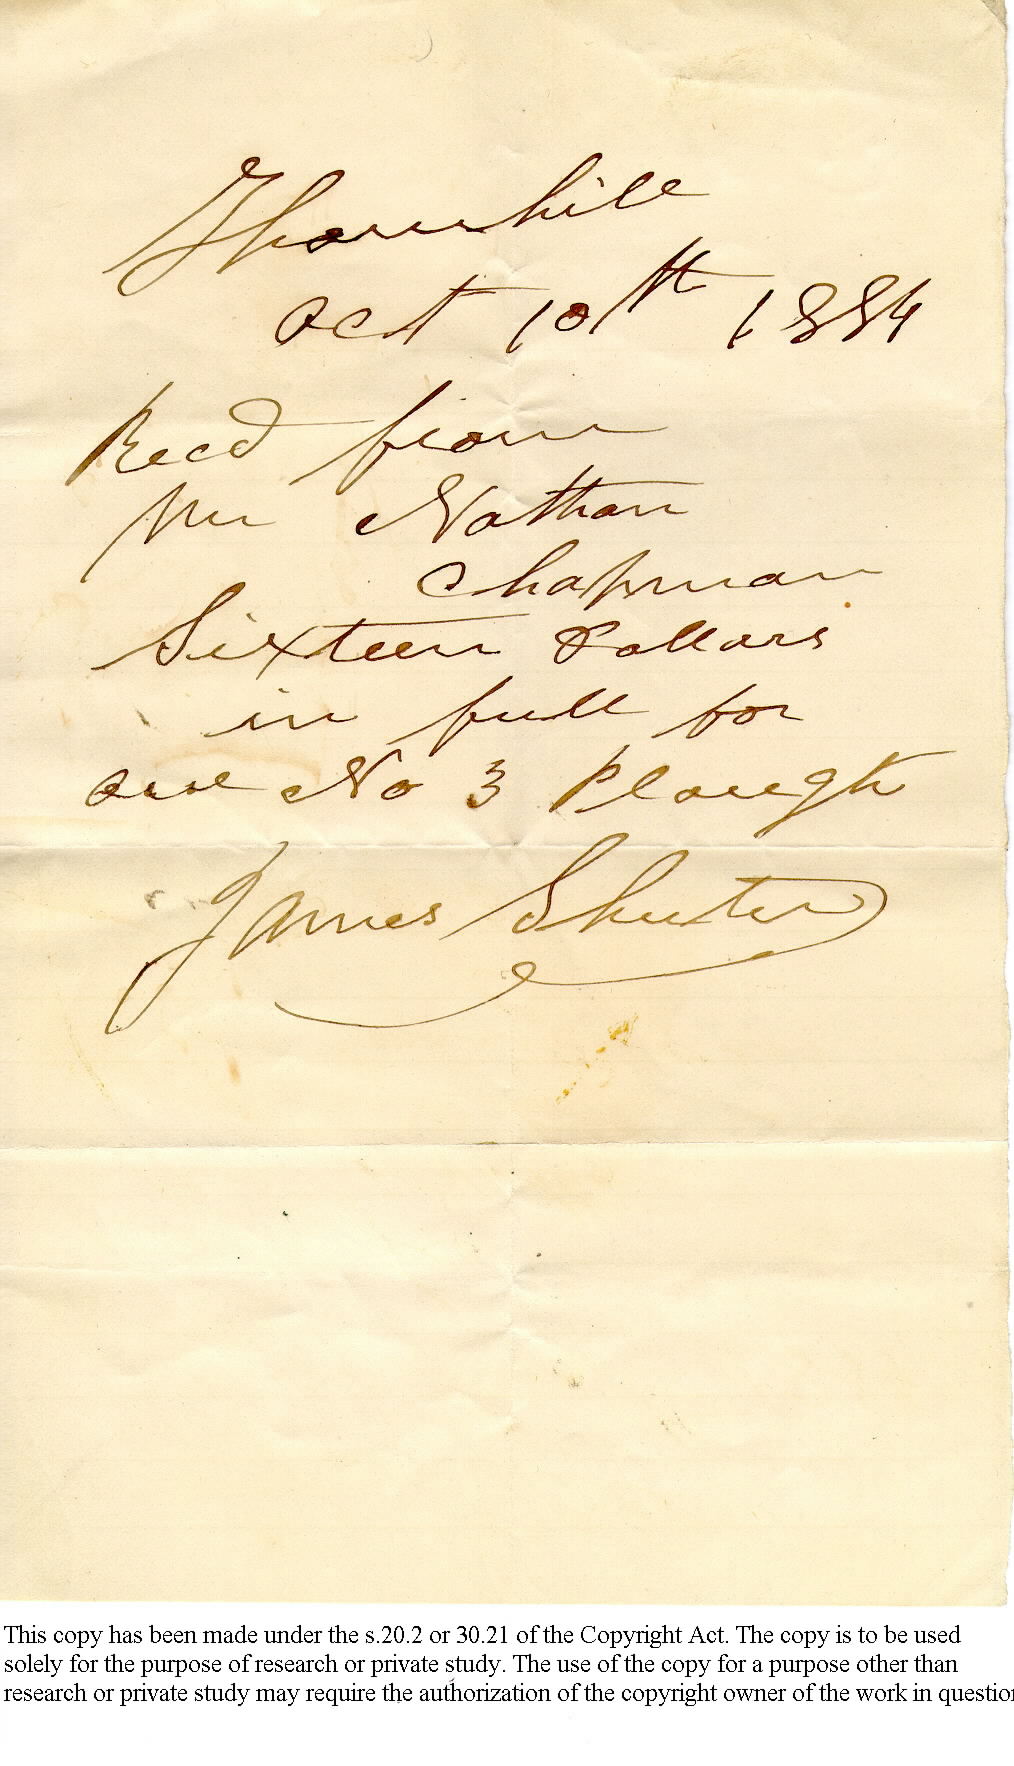 Thornhill
Oct 10th 1884
Recd from
Mr Nathan
Chapman
Sixteen Dollars
in full for
one No 3 Plough
James Shuter
This copy has been made under the s.20.2 or 30.21 of the Copyright Act. The copy is to be used
solely for the purpose of research or private study. The use of the copy for a purpose other than
research or private study may require the authorization of the copyright owner of the work in question